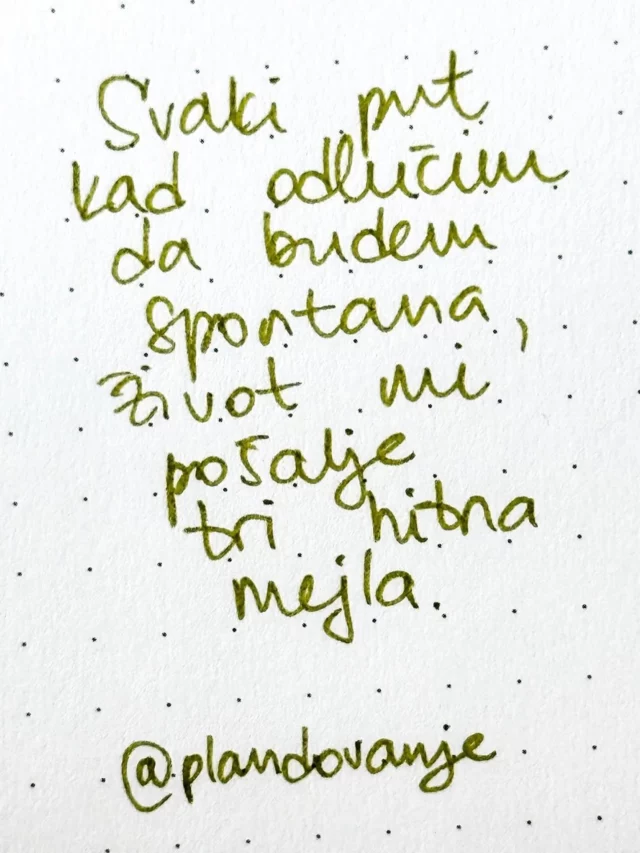 Svaki put
kad odlučim
da budem
spontana,
život mi
pošalje
tri hitna
mejla.
@plandovanje